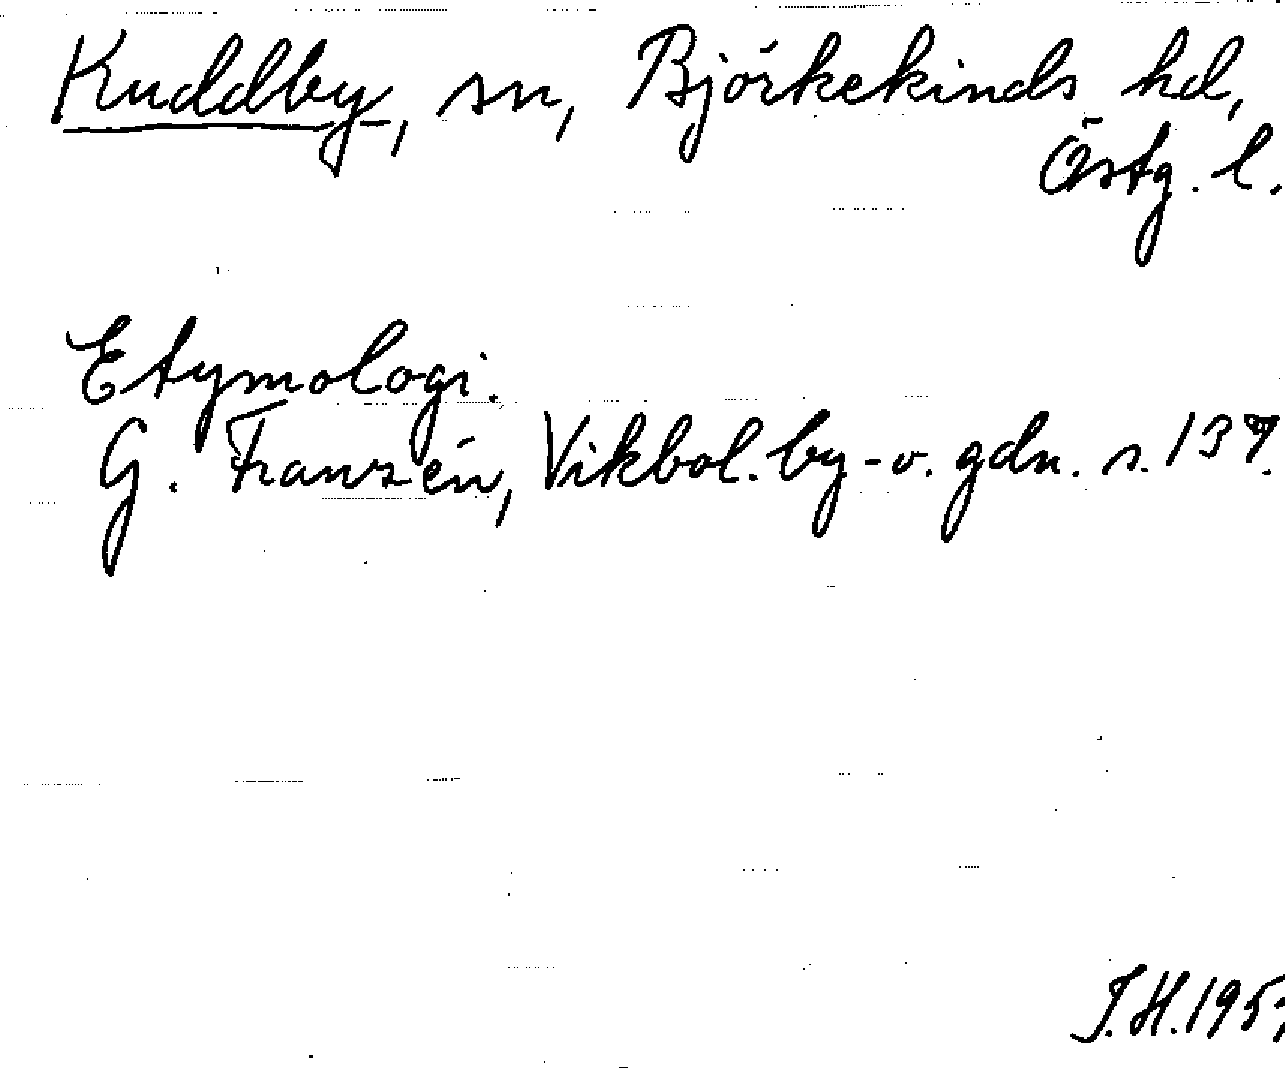 Kuddby, sn, Björkekinds hd,
Östg. l.
Etymologi.
G. Franzén, Vikbol. by- o. gdn. s. 137.
J.H. 195